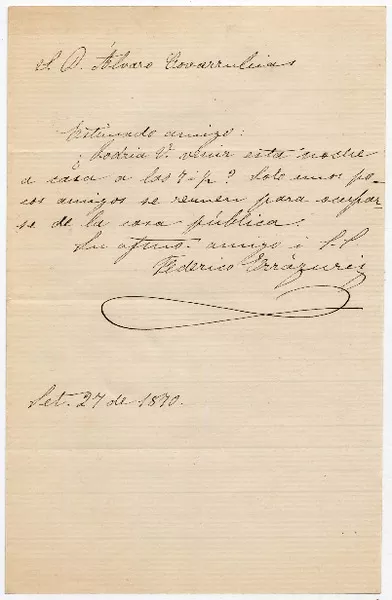 S. D. Álvaro Covarrubias
Estimado amigo:
¿Podria V. venir esta noche
a casa a las 7 i ½? Solo unos po-
cos amigos se reunen para ocupar-
se de la cosa pública.
Su afmo. amigo i S. S.
Federico Errázuriz
Set. 27 de 1870.